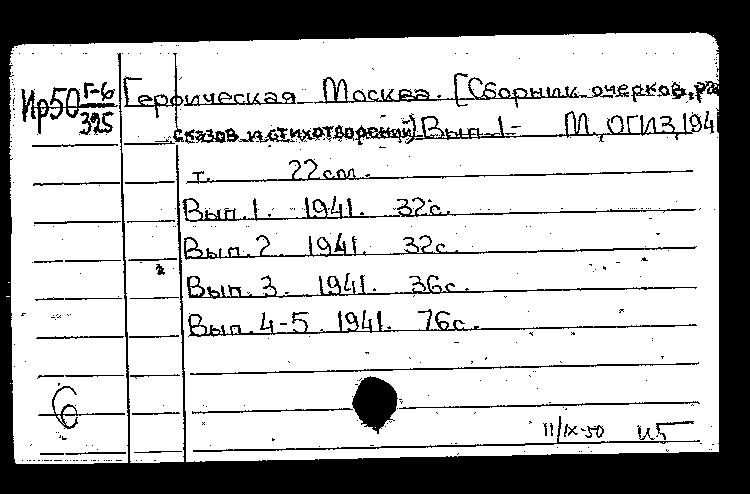 Ир50 Г-6/325 Героическая Москва. [Сборник очерков, рас
сказов и стихотворений] Вып. 1- М., ОГИЗ, 1941
т. 22 см.
Вып. 1. 1941. 32 с.
Вып. 2. 1941. 32 с.
Вып. 3. 1941. 36 с.
Вып. 4-5. 1941. 76 с.
6
11/IX-50